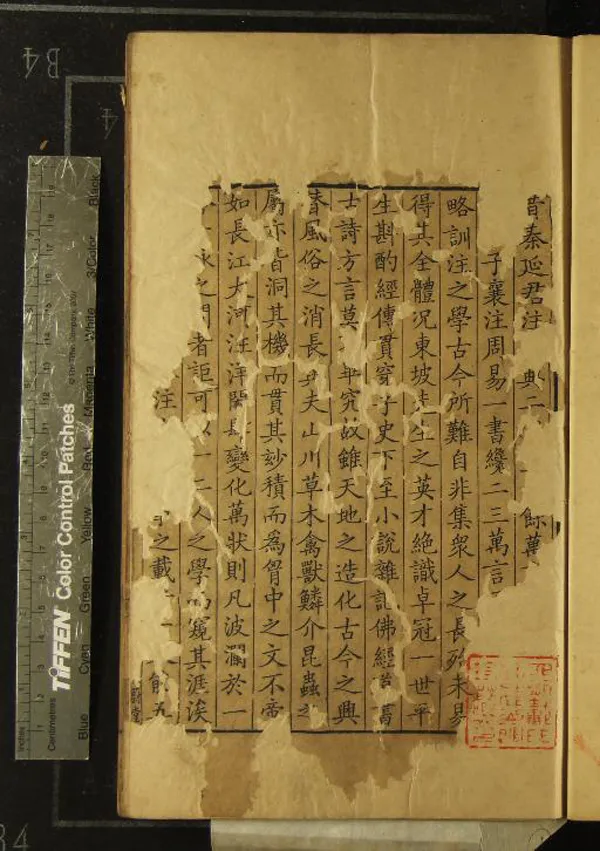 昔秦延君注 典二 餘萬
子襄注周易一書纔二三萬言
略訓注之學古今所難自非集衆人之長殆未易
得其全體况東坡先生之英才絶識卓冠一世平
生斟酌經傳貫穿子史下至小說雜記佛經 舊
士詩方言莫 究故雖天地之造化古今之興
春風俗之消長 夫山川草木禽獸鱗介昆蟲之
屬亦皆洞其機而貫其妙積而爲胷中之文不啻
如長江大河汪洋閎 變化萬狀則凡波瀾於一
詠之間 者詎可以一二人之學而窺其涯涘
注 之載
B4
4
B4
TIFFEN Color Control Patches
Blue Cyan Green Yellow Red Magenta White 3/Color Black
Inches
Centimetres